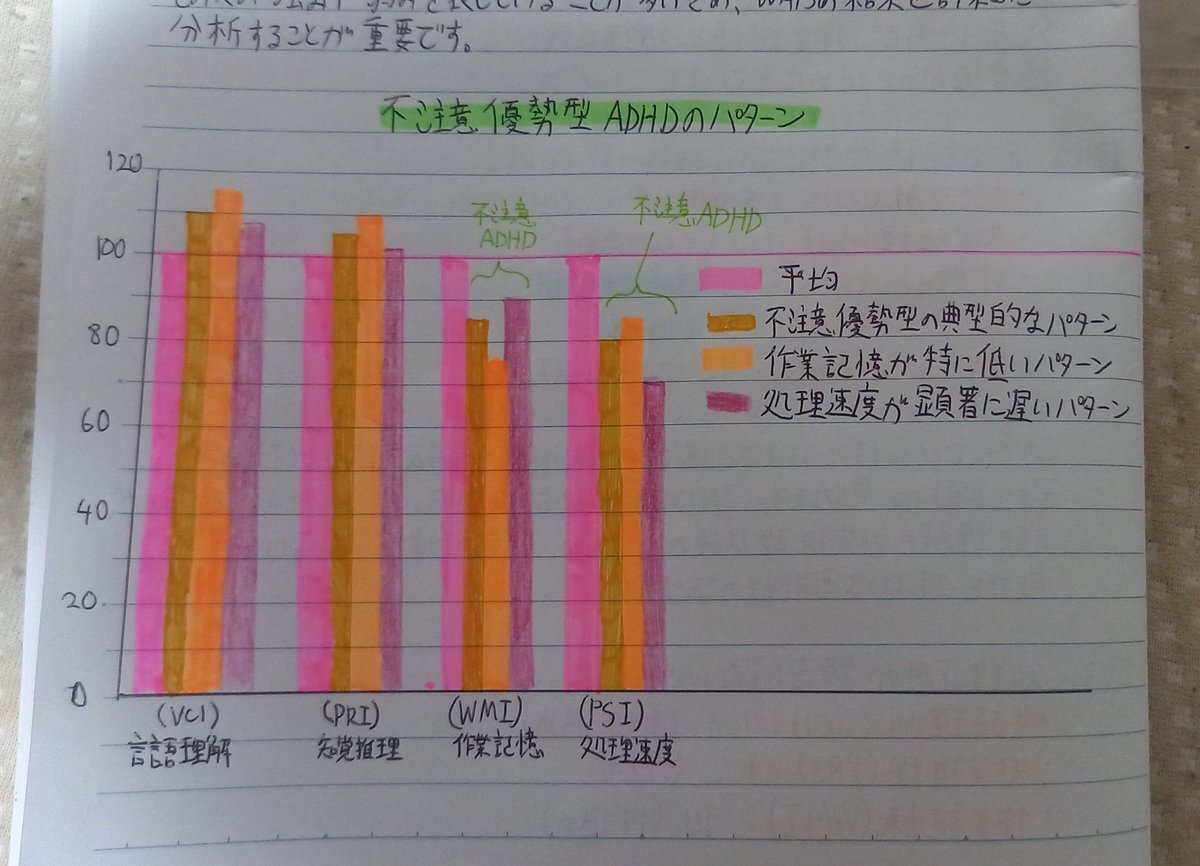 分析することが重要です。
不注意優勢型ADHDのパターン
120
100
80
60
40
20
0
不注意
ADHD
不注意ADHD
平均
不注意優勢型の典型的なパターン
作業記憶が特に低いパターン
処理速度が顕著に遅いパターン
(VCI)
(PRI)
(WMI)
(PSI)
言語理解
知覚推理
作業記憶
処理速度